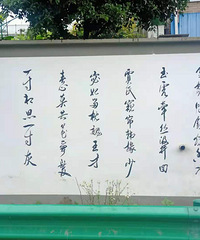 玉虎牵丝汲井回
賈氏窺帘韩掾少
宓妃留枕魏王才
春心莫共花争發
一寸相思一寸灰